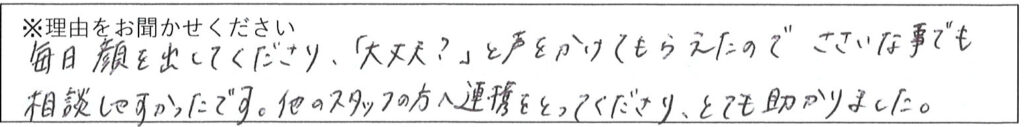 ※理由をお聞かせください
毎日顔を出してくださり、「大丈夫？」と声をかけてもらえたので ささいな事でも
相談しやすかったです。他のスタッフの方へ連携をとってくださり、とても助かりました。